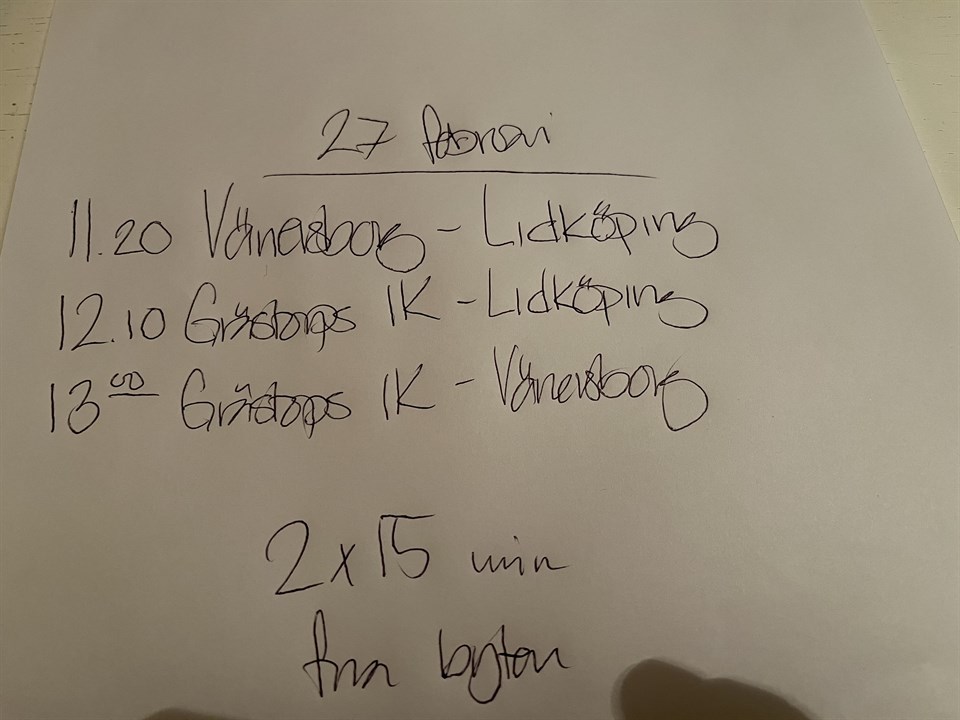 27 februari
11.20 Vänersborg - Lidköping
12.10 Grästorps IK - Lidköping
13 00 Grästorps IK - Vänersborg
2 x 15 min
fria byten